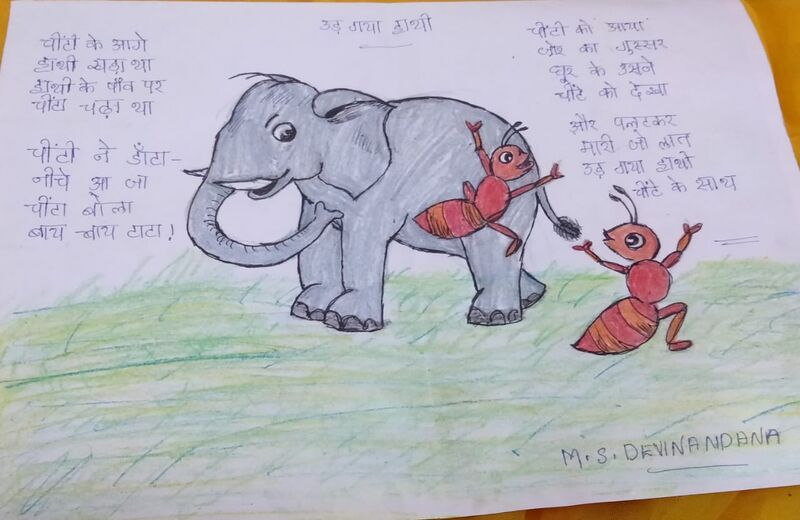 उड़ गया हाथी
चींटी के आगे
हाथी खड़ा था
हाथी के पाँव पर
चींटा चढ़ा था
चींटी ने डाँटा -
नीचे आ जा
चींटा बोला
बाय बाय टाटा!
चींटी को आया
जोर का गुस्सर
घूर के उसने
चींटे को देखा
और पलटकर
मारी जो लात
उड़ गया हाथी
चींटे के साथ
M. S. DEVINANDANA